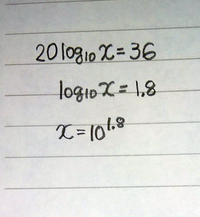 20log₁₀x=36
log₁₀x=1.8
x=10^1.8